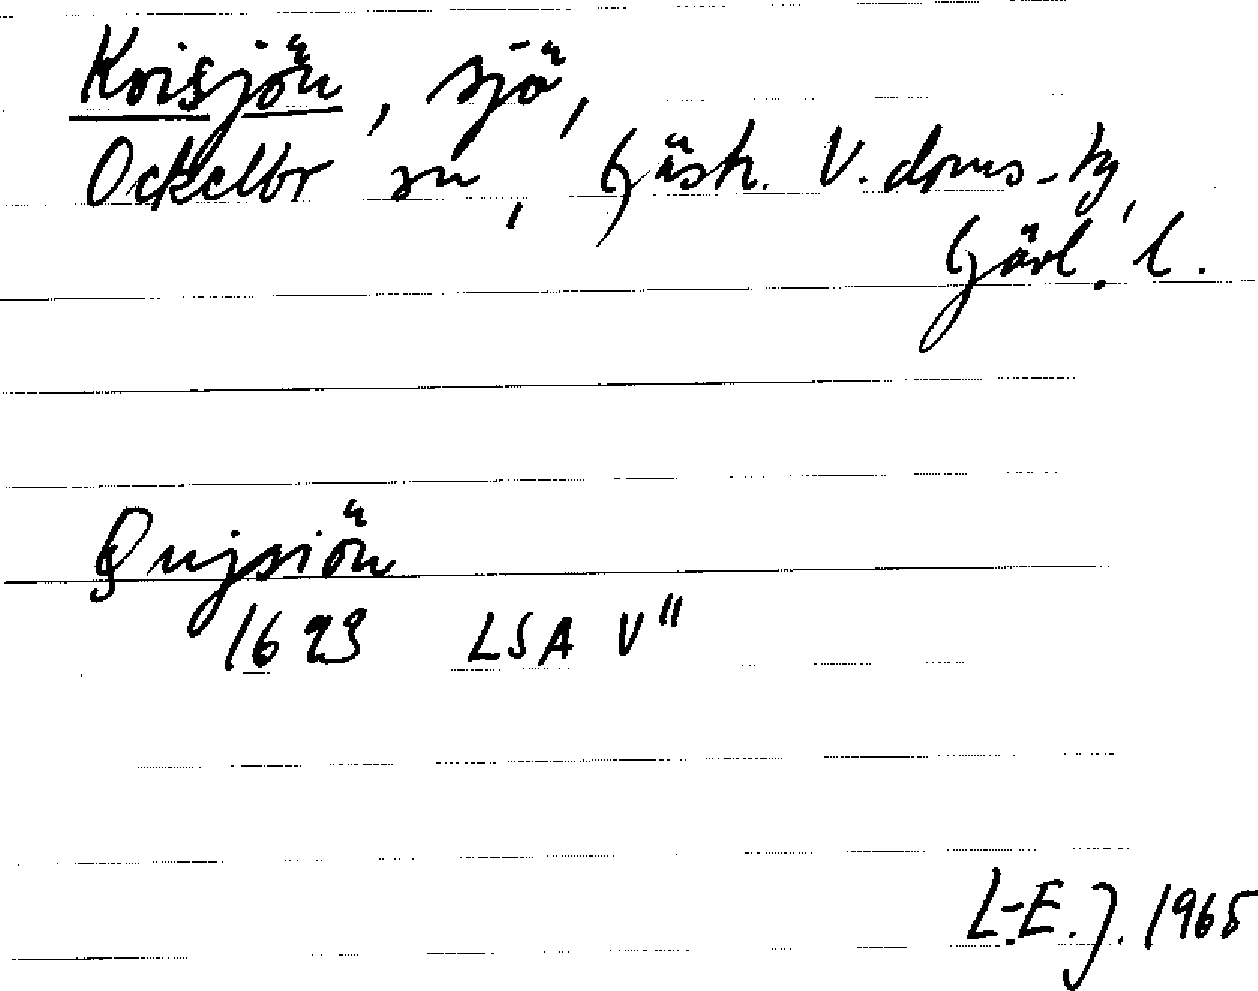 Kvisjön, sjö,
Ockelbo sn, Gästr. V. doms-tg,
Gävl. l.
Qvijsiön
1623 LSA V"
L-E. J. 1965